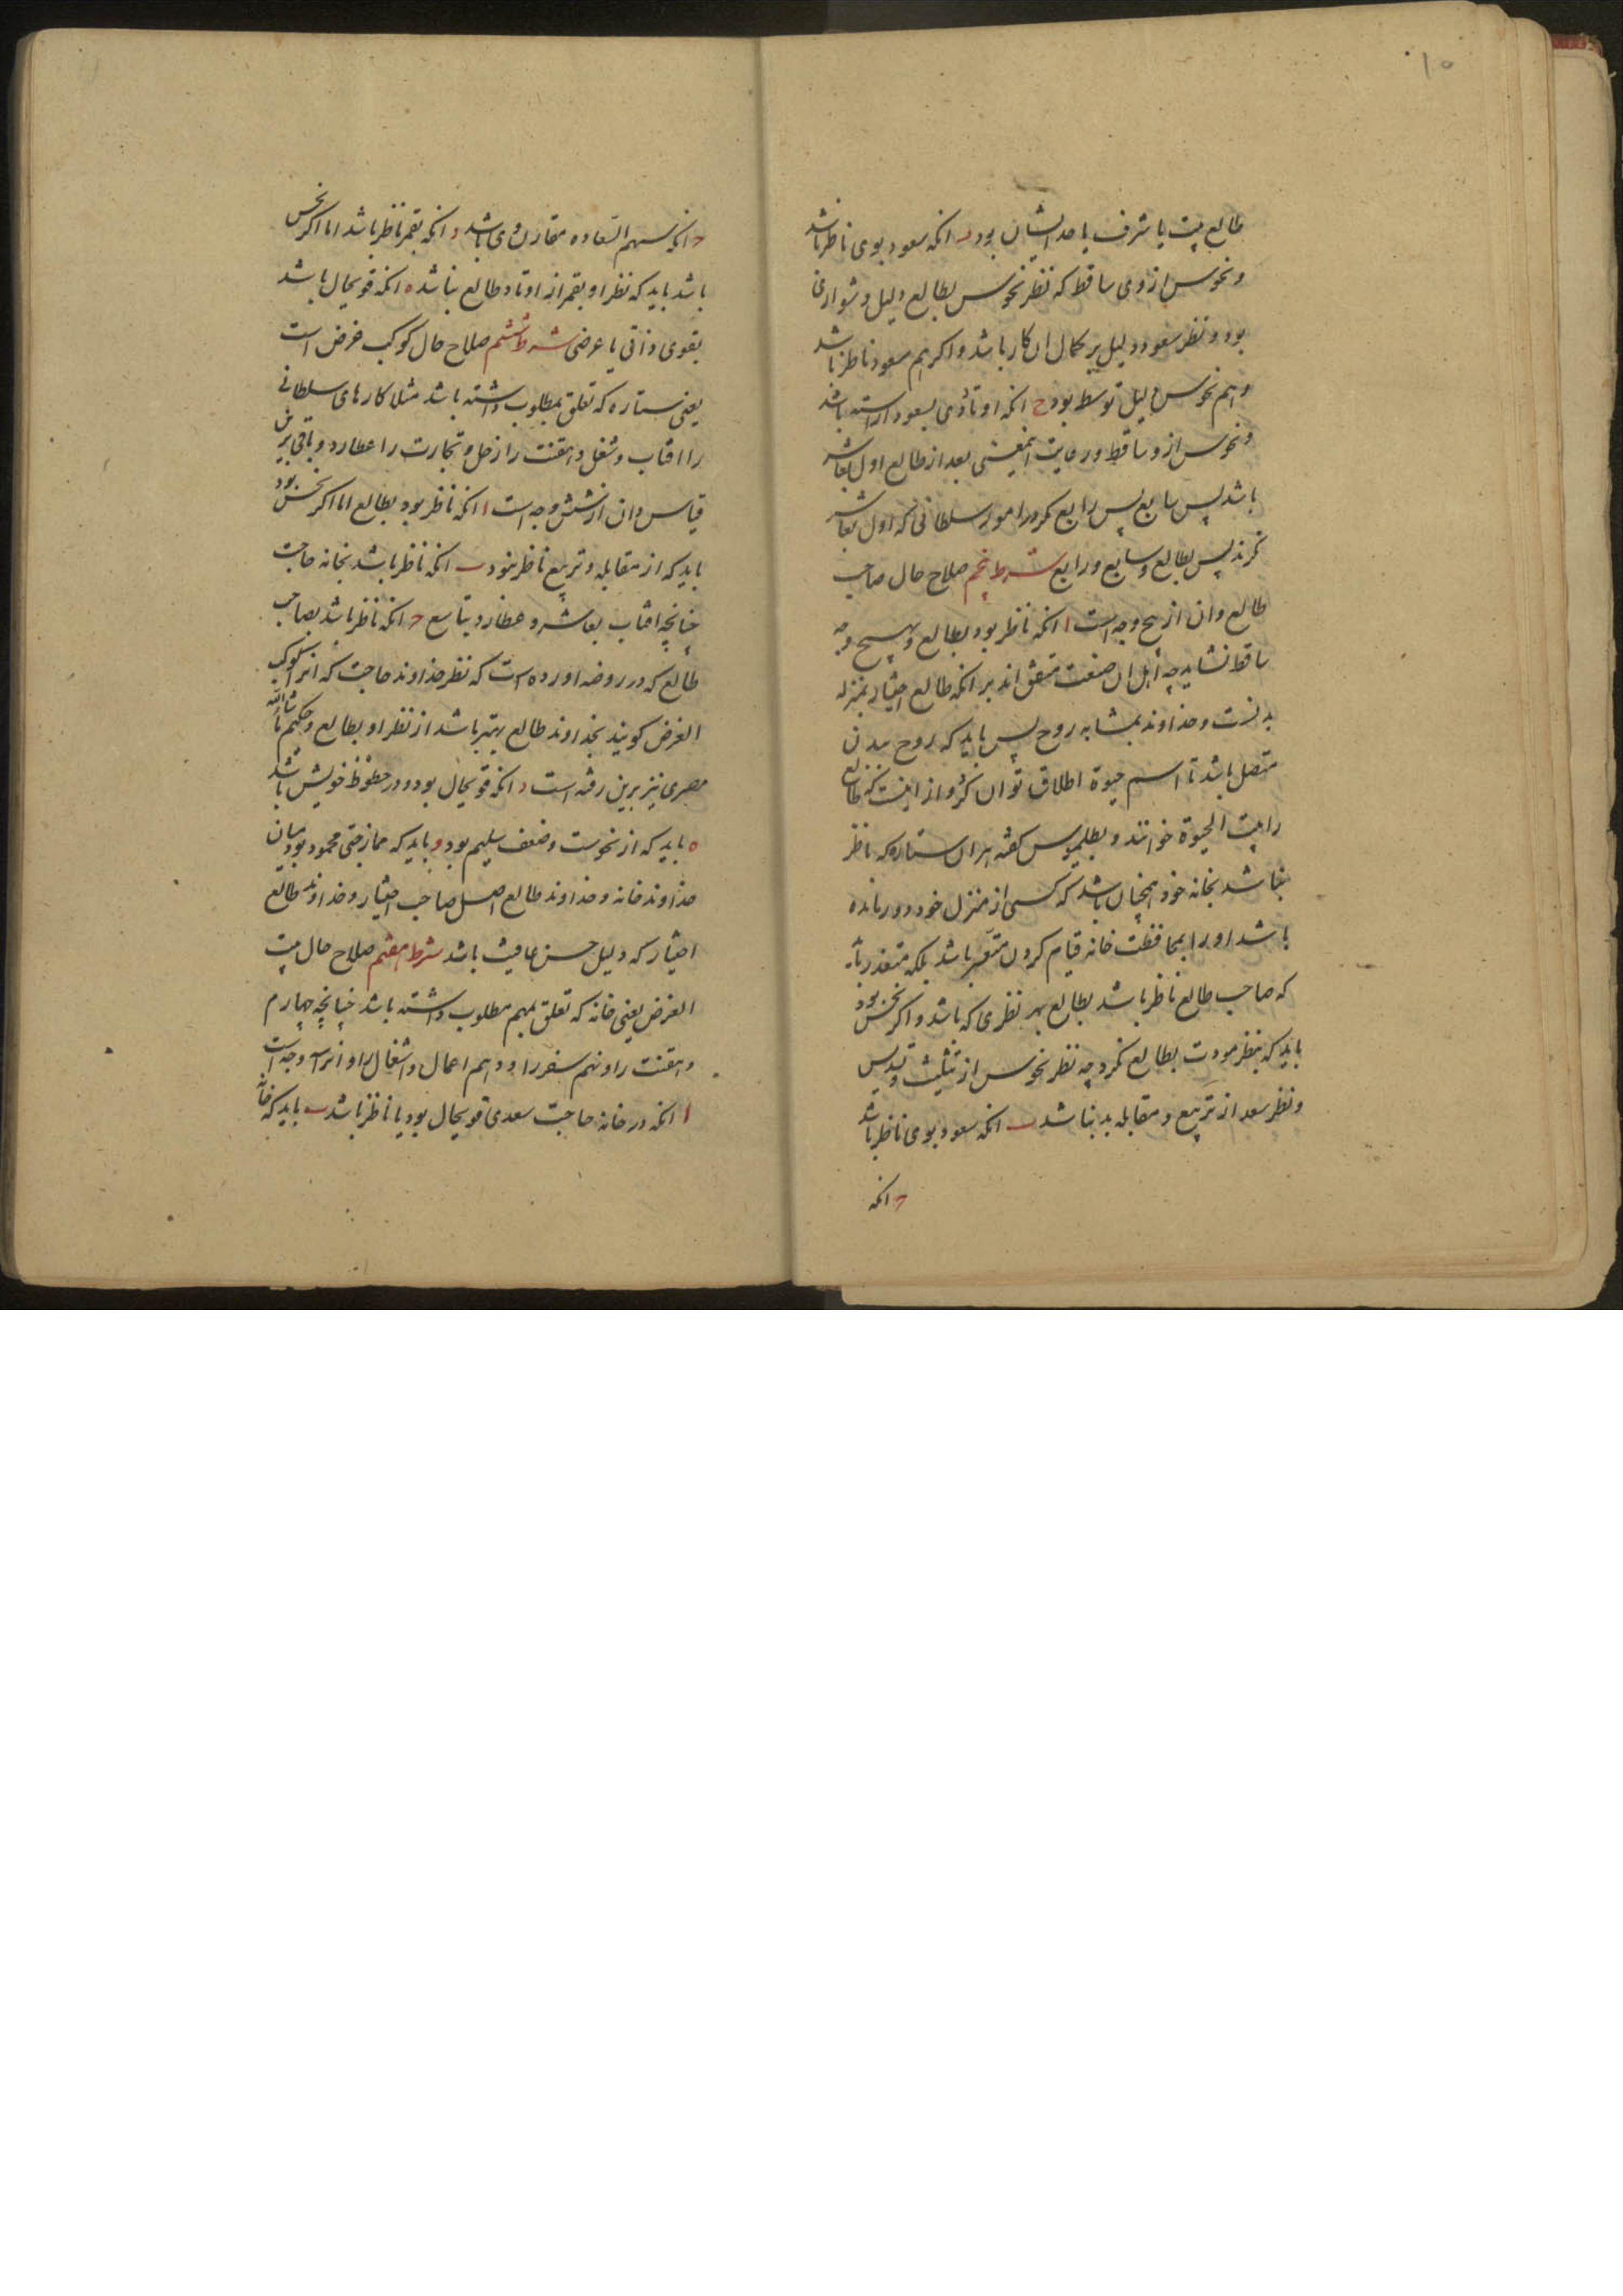 ۱۰
طالع بیت یا شرف یا حد ایشان بود ب انکه سعود بوی ناظر باشد
و نحوس از وی ساقط که نظر نحوس بطالع دلیل دشواری
بود و نظر سعود دلیل بر کمال ان کار باشد و اکر هم سعود ناظر باشد
و هم نحوس دلیل توسط بود ج انکه اوتاد وی بسعود اراسته باشد
و نحوس ازو ساقط و رعایت اینمعنی بعد از طالع اول بعاشر
باشد پس سابع پس رابع مکر در امور سلطانی که اول بعاشر
نکرند پس بطالع و سابع و رابع شرط پنجم صلاح حال صاحب
طالع و ان از پنج وجه است ا انکه ناظر بود بطالع و بهیچ وجه
ساقط نشاید چه اهل ان صنعت متفق اند بر انکه طالع اختیار بمنزله
بدنست و خداوند بمثابه روح پس باید که روح ببدن
متصل باشد تا اسم حیوة اطلاق توان کرد و از اینست که طالع
را بیت الحیوة خوانند و بطلمیوس کفته هر ان ستاره که ناظر
نباشد بخانه خود همچنان باشد که کسی از منزل خود دور مانده
باشد او را بمحافظت خانه قیام کردن متعسر باشد بلکه متعذر باید
که صاحب طالع ناظر باشد بطالع بهر نظری که باشد و اکر نحس بود
باید که بنظر مودت بطالع نکرد چه نظر نحوس از تثلیث و تسدیس
و نظر سعد از تربیع و مقابله بد نباشد ب انکه سعود بوی ناظر باشد
ج انکه
ج انکه سهم السعاده مقارن وی باشد د انکه بقمر ناظر باشد اما اکر نحس
باشد باید که نظر او بقمر از اوتاد طالع نباشد ه انکه قویحال باشد
بقوی ذاتی یا عرضی شرط ششم صلاح حال کوکب غرض است
یعنی ستاره که تعلق بمطلوب داشته باشد مثلا کارهای سلطانی
را افتاب و شغل دهقنت را زحل و تجارت را عطارد و باقی برین
قیاس و ان از شش وجه است ا انکه ناظر بود بطالع اما اکر نحس بود
باید که از مقابله و تربیع ناظر نبود ب انکه ناظر باشد بخانه حاجت
چنانچه افتاب بعاشر و عطارد بتاسع ج انکه ناظر باشد بصاحب
طالع که در روضه اورده است که نظر خداوند حاجت که انرا کوکب
الغرض کویند بخداوند طالع بهتر باشد از نظر او بطالع و حکیم ماشاالله
مصری نیز برین رفته است د انکه قویحال بود و در حظوظ خویش باشد
ه باید که از نحوست و ضعف سلیم بود و باید که ممازجتی محمود بود میان
خداوند خانه و خداوند طالع اصل صاحب اختیار و خداوند طالع
اختیار که دلیل حسن عاقبت باشد شرط هفتم صلاح حال بیت
الغرض یعنی خانه که تعلق بمهم مطلوب داشته باشد چنانچه چهارم
دهقنت را و نهم سفر را و دهم اعمال و اشغال را و انرا سه وجه است
ا انکه در خانه حاجت سعدی قویحال بود یا ناظر باشد ب باید که خانه